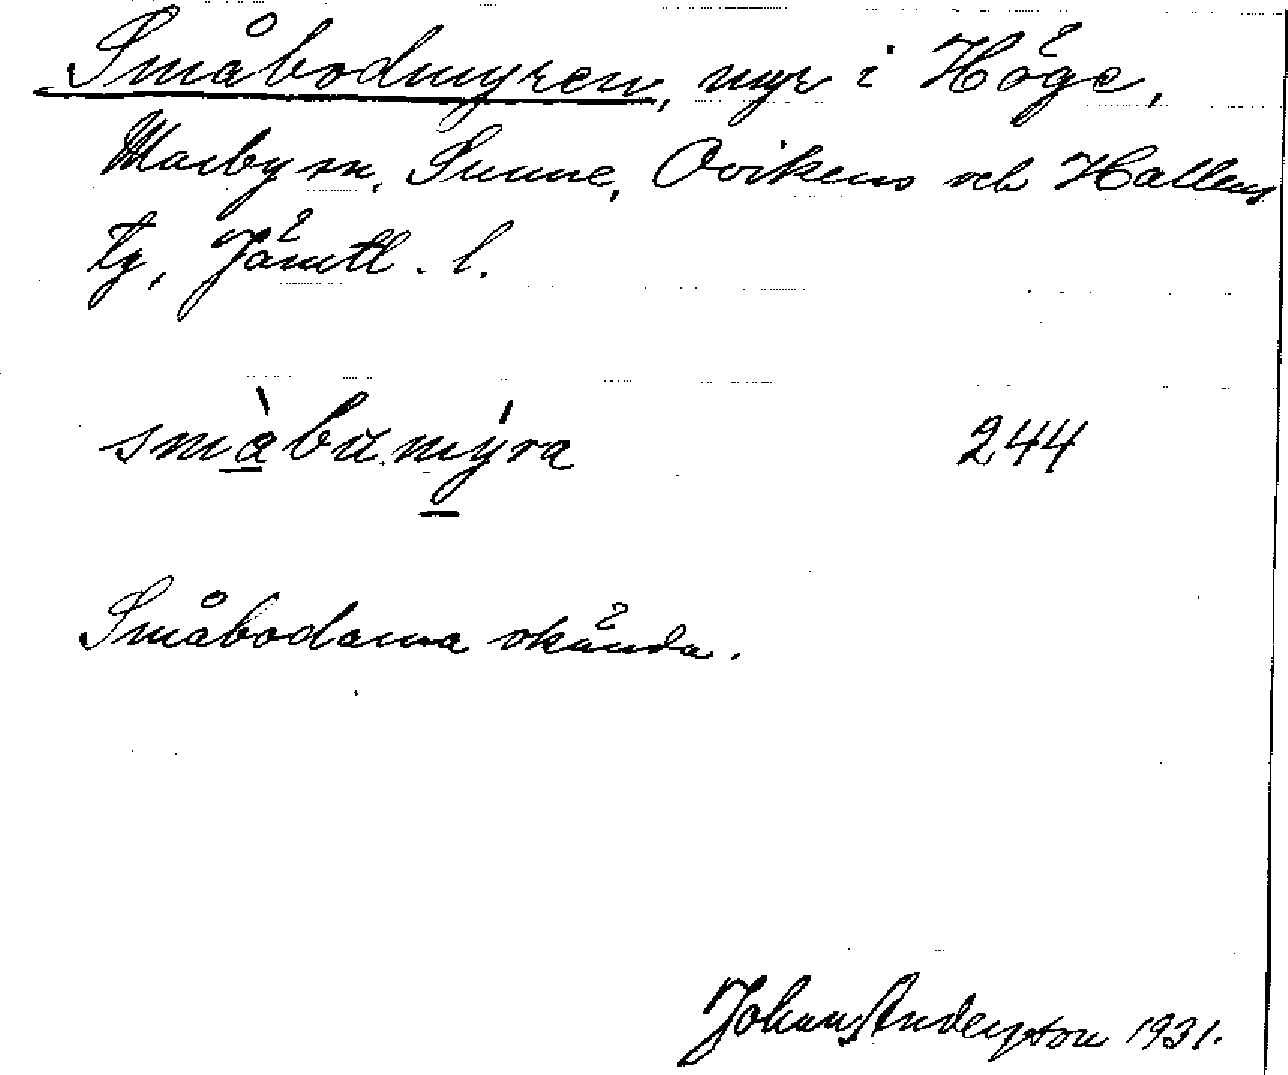 Småbodmyren, myr i Höge,
Marby sn, Sunne, Ovikens och Hallens
tg, Jämtl. l.
småbu.mýra 244
Småbodarna okända.
Johan Anderzson 1931.